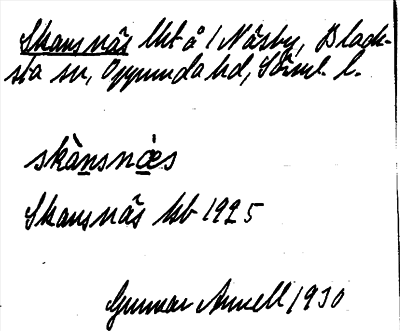 Skansnäs lht å 1 Näsby, Black-
sta sn, Oppunda hd, Sörml. l.
skànsnœ̀s
Skansnäs kb 1925
Gunnar Annell 1930